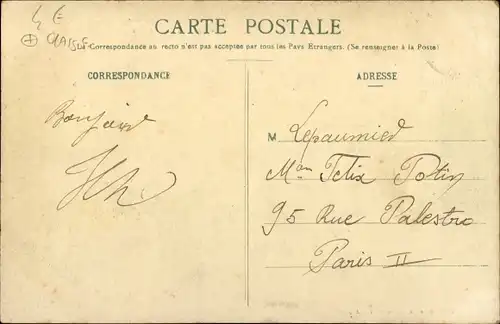 4 €
CLASSE
CARTE POSTALE
La Correspondance au recto n'est pas acceptée par tous les Pays Étrangers. (Se renseigner à la Poste)
CORRESPONDANCE
ADRESSE
Bonjour
M Lepaumier
Mon Félix Potin
95 Rue Palestro
Paris II